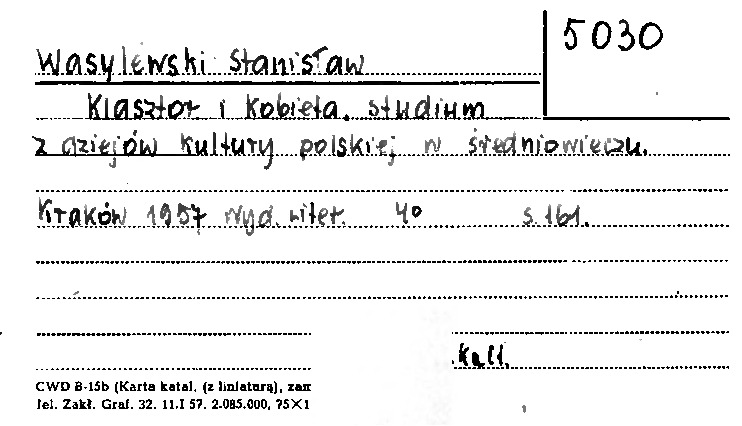 5030
Wasylewski Stanisław
Klasztor i kobieta. studium
z dziejów kultury polskiej w średniowieczu.
Kraków 1957 wyd. liter. 4° s. 161.
Kall.
CWD B-15b (Karta katal. (z liniaturą), zam
Jel. Zakł. Graf. 32. 11.I 57. 2.085.000, 75×1